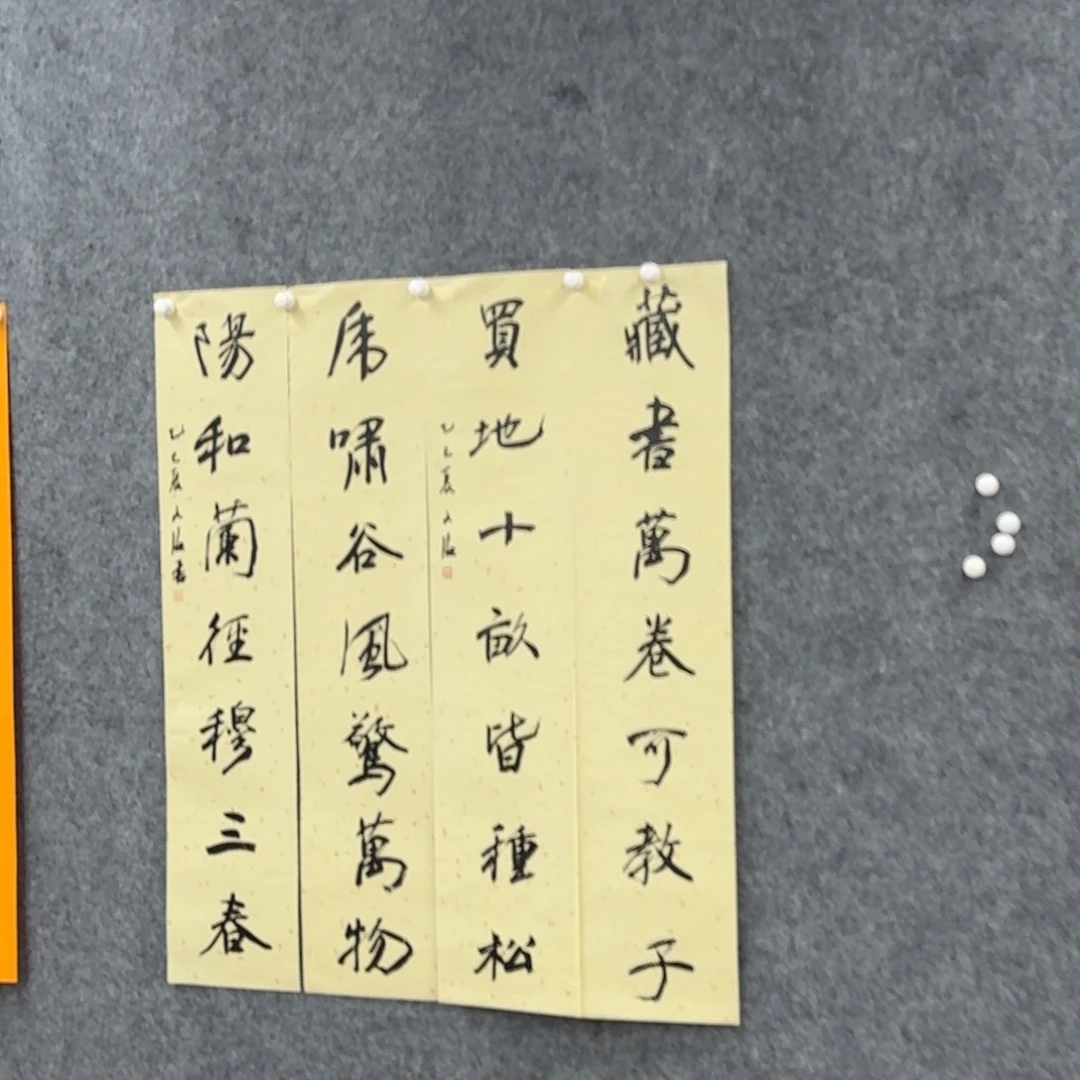 藏書萬卷可教子
買地十畝皆種松
乙巳夏
虎嘯谷風驚萬物
陽和蘭徑穆三春
乙巳夏